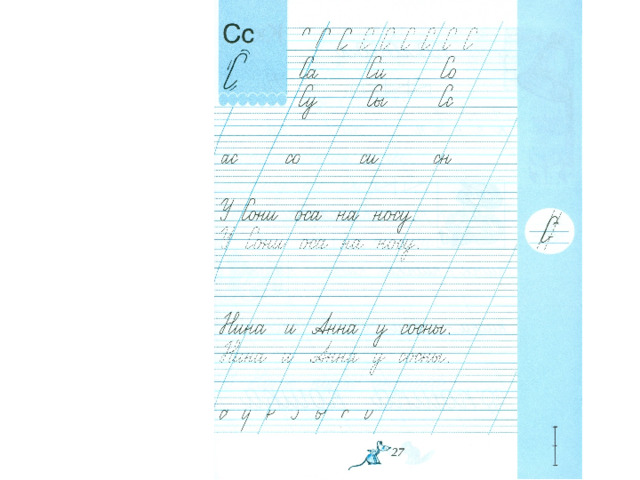 Сс
С С С С С С
С
Са Си Со
Су Сы Се
ас со си сн
У Сони оса на носу.
У Сони оса на носу.
Нина и Анна у сосны.
Нина и Анна у сосны.
27